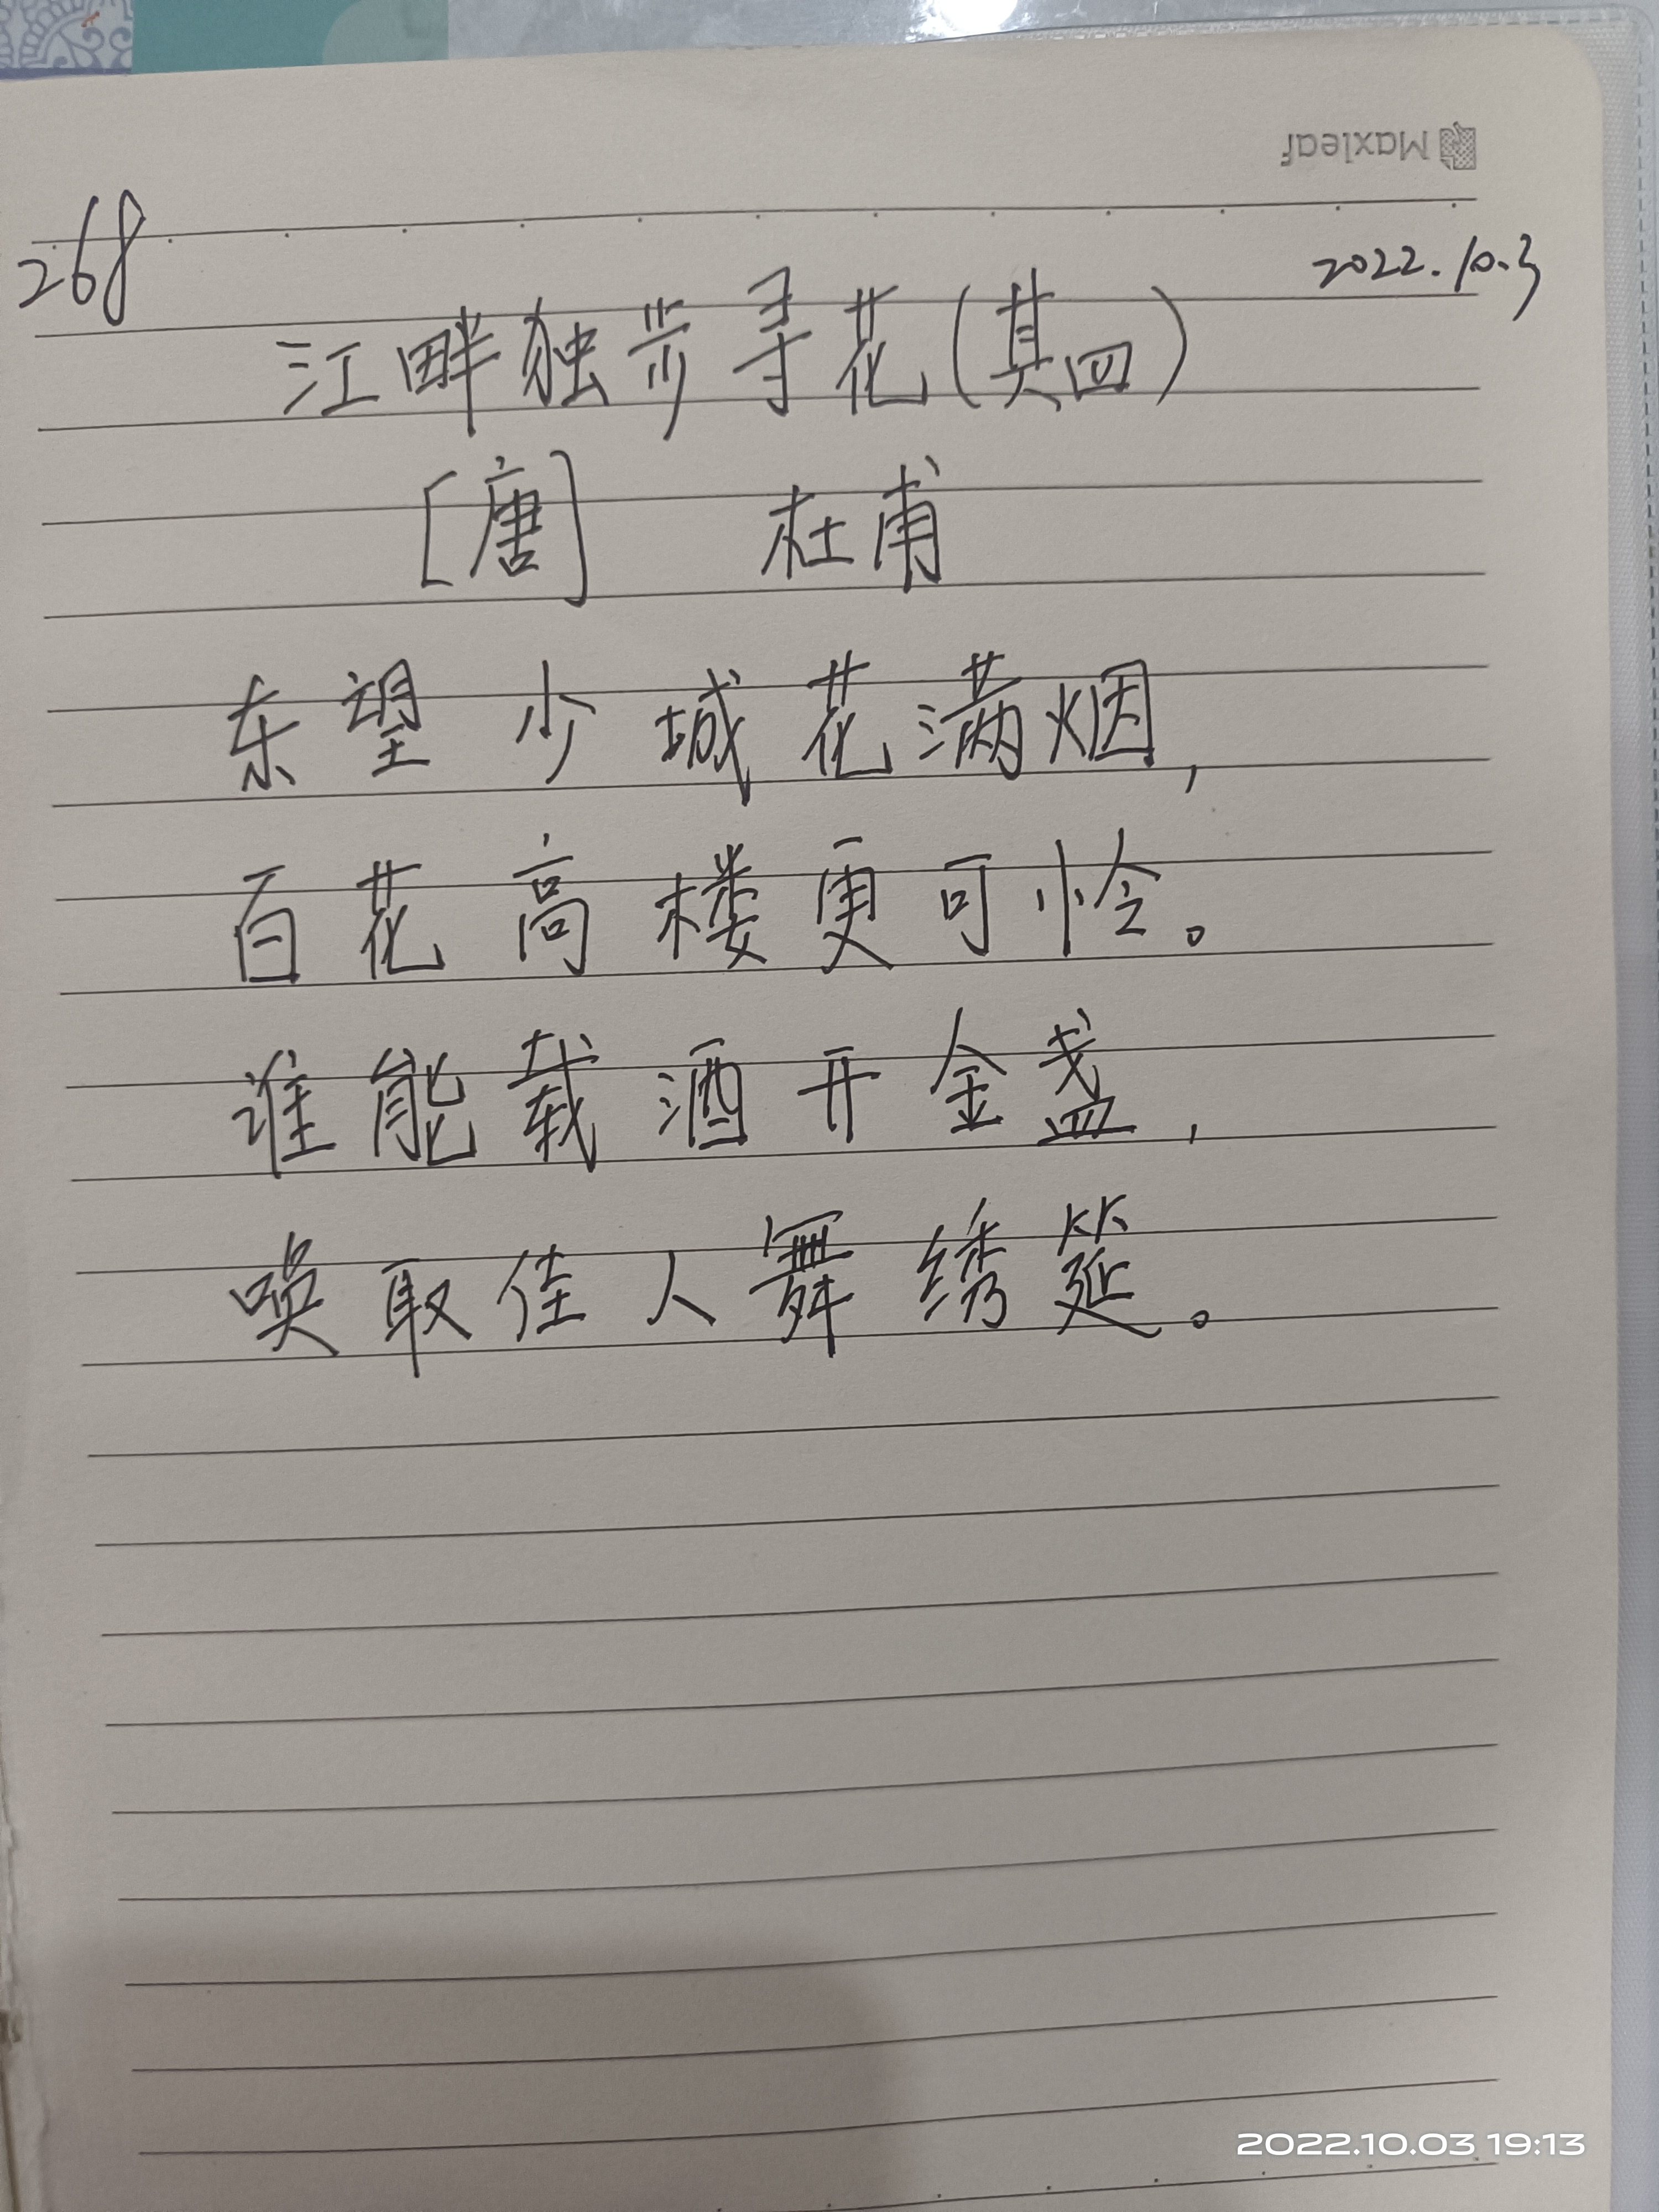 Maxleaf
268
2022.10.3
江畔独步寻花(其四)
[唐] 杜甫
东望少城花满烟,
百花高楼更可怜。
谁能载酒开金盏,
唤取佳人舞绣筵。
2022.10.03 19:13